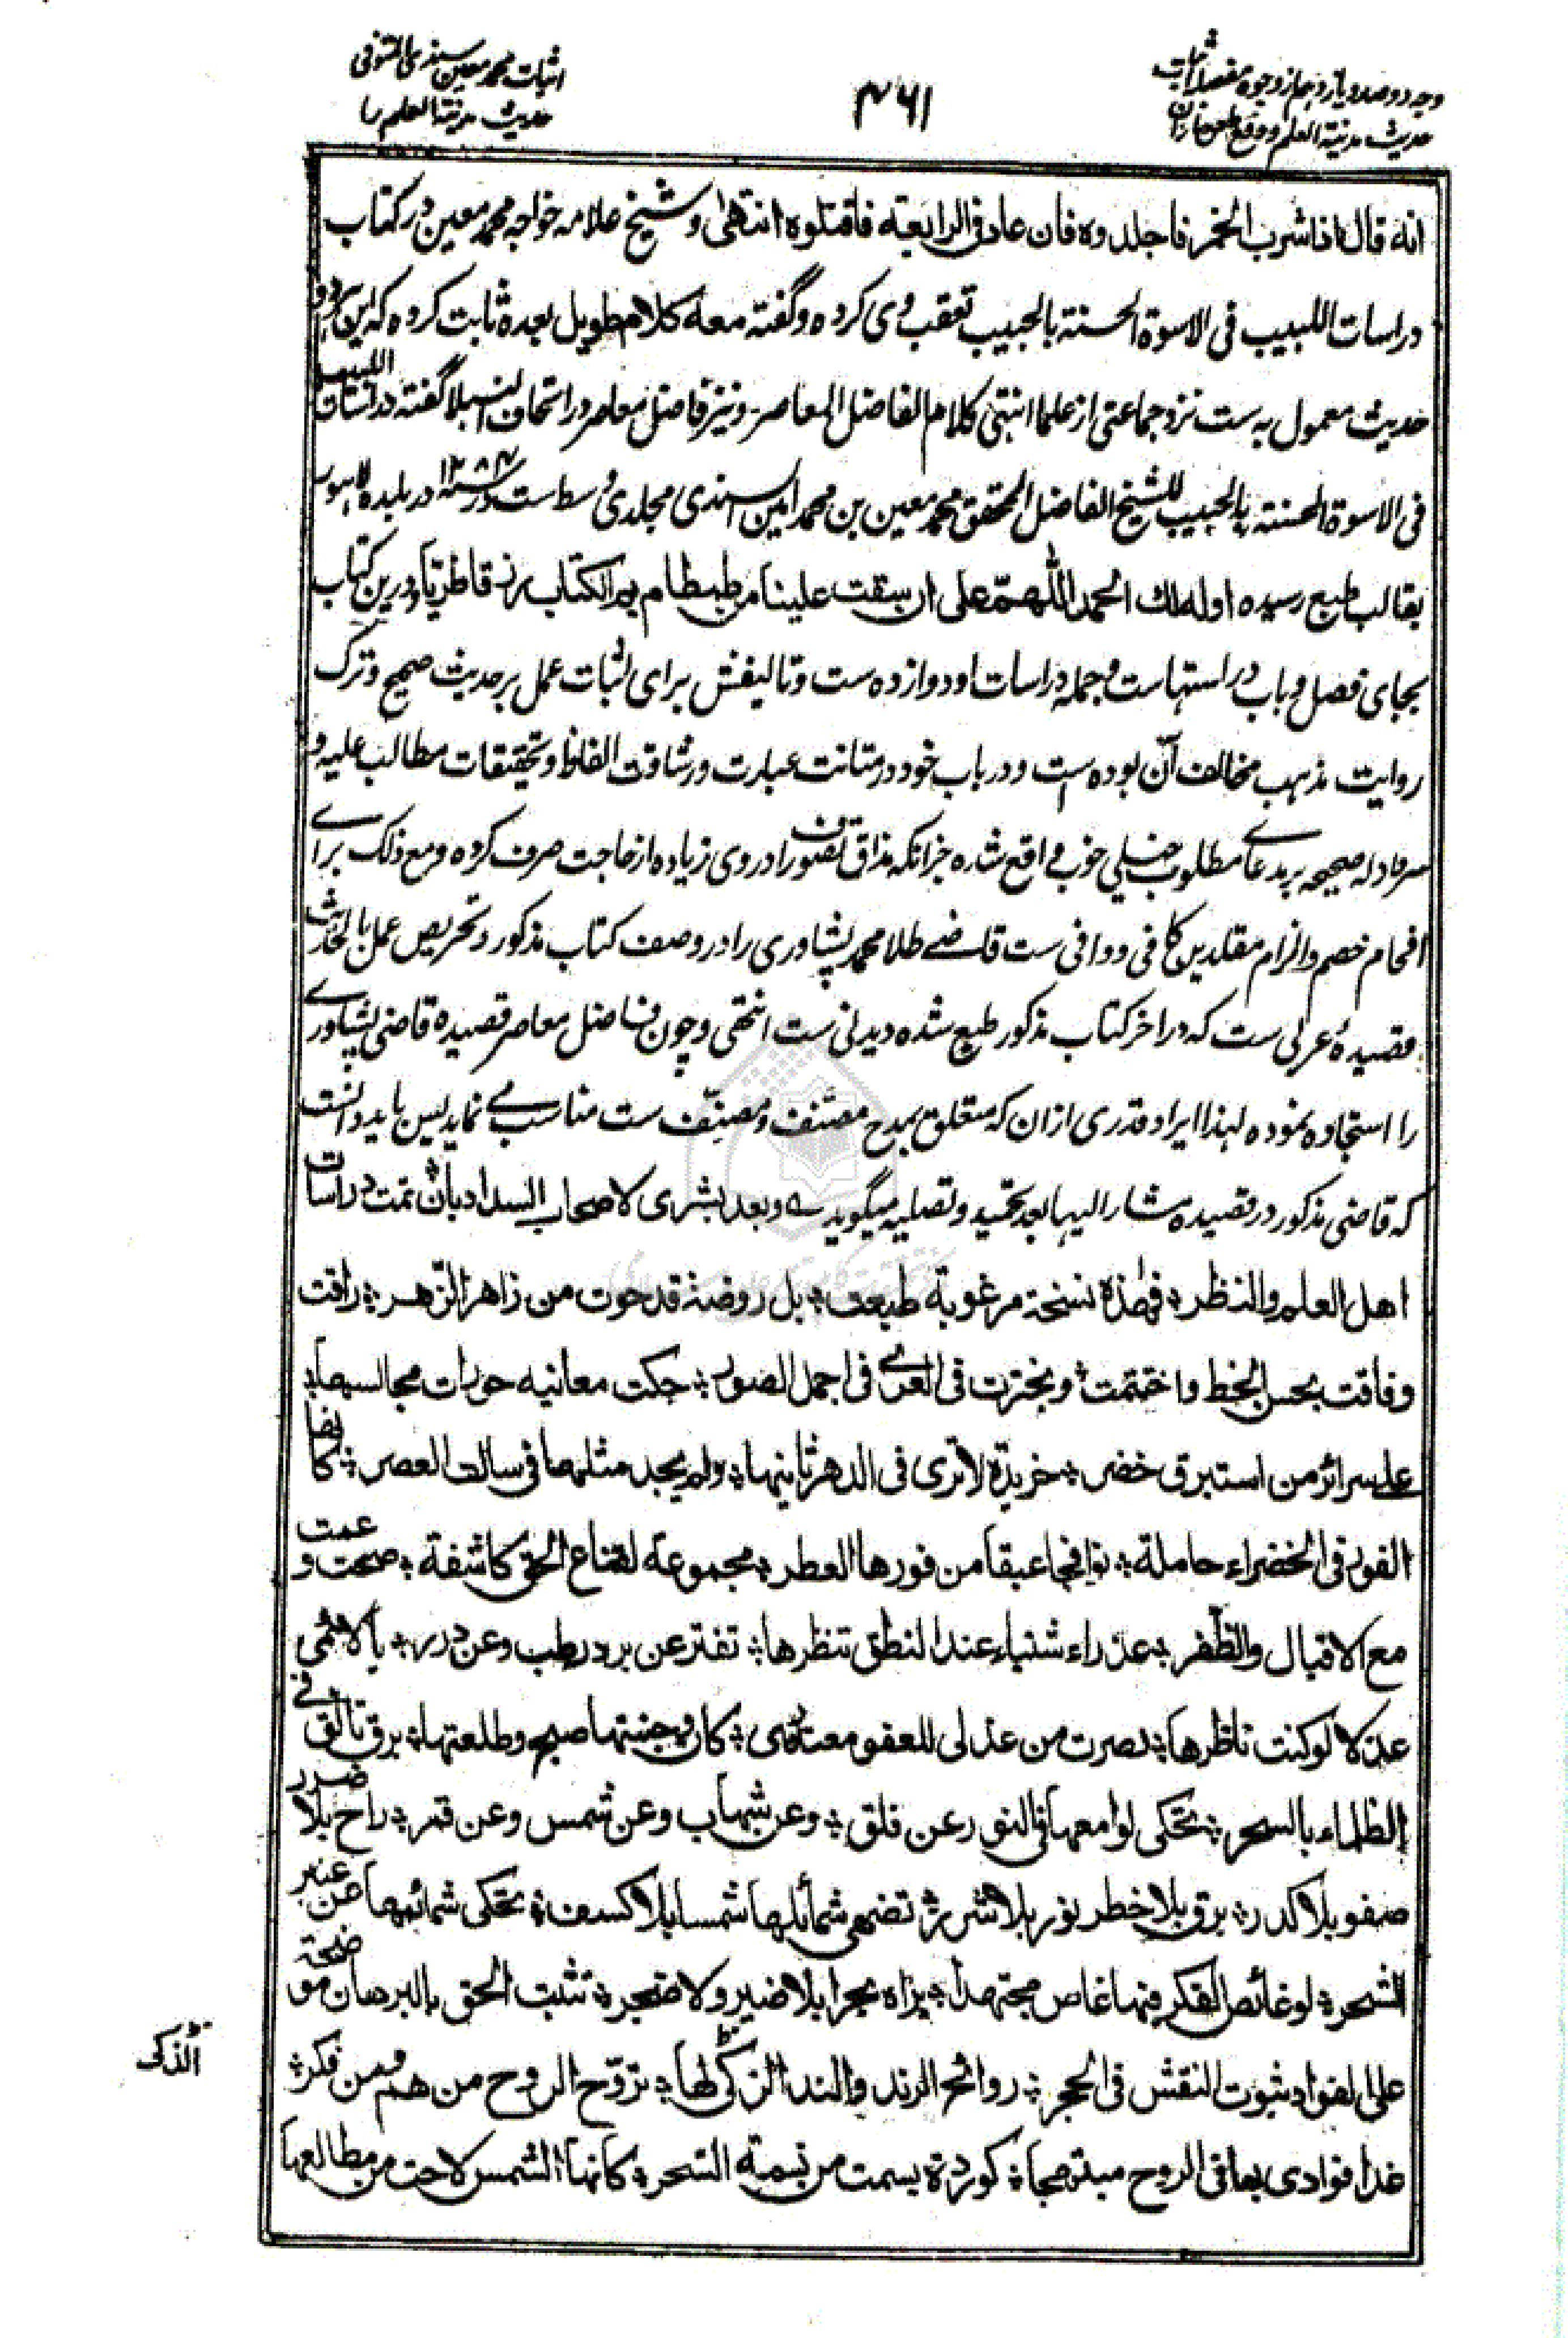 وجه دو صد و یازدهم از وجوه مفصله اثبات
حدیث مدینة العلم و دفع طعن طاعنان
۴۶۱
اثبات محمد معین سندی المتوفی
حدیث مدینة العلم را
انه قال اذا شرب الخمر فاجلدوه فان عاد فی الرابعة فاقتلوه انتهی و شیخ علامه خواجه محمد معین در کتاب
دراسات اللبیب فی الاسوة الحسنة بالحبیب تعقب وی کرده و گفته معه کلام طویل بعده ثابت کرده که این هر دو
حدیث معمول به ست نزد جماعتی از علما انتهی کلام الفاضل المعاصر و نیز فاضل معاصر در اتحاف النبلا گفته دراسات اللبیب
فی الاسوة الحسنة بالحبیب للشیخ الفاضل المحقق محمد معین بن محمد امین السندی مجلدی وسط است در سنه ۱۲۸۴ در بلده لاهور
بقالب طبع رسیده اوله لک الحمد اللهم علی ان سقت علینا من طمطام یم الکتاب برز قاطریا و درین کتاب
بجای فصل و باب دراستهاست و جمله دراسات او دوازده ست و تالیفش برای اثبات عمل بر حدیث صحیح و ترک
روایت مذهب مخالف آن بوده است و در باب خود در متانت عبارت و رشاقت الفاظ و تحقیقات مطالب علیه و
سرد ادله صحیحه بر مدعای مطلوب خیلی خوب واقع شده جز آنکه مذاق تصوف را در وی زیاده از حاجت صرف کرده و مع ذلک برای
افحام خصم و الزام مقلدین کافی و وافی ست قاضی طلا محمد پشاوری را در وصف کتاب مذکور و تحریص عمل بالحدیث
قصیدهٔ عربی ست که در اخر کتاب مذکور طبع شده دیدنی ست انتهی و چون فاضل معاصر قصیده قاضی پشاوری
را استجاده نموده لهذا ایراد قدری از ان که متعلق بمدح مصنَف و مصنِف ست مناسب می نماید پس باید دانست
که قاضی مذکور در قصیده مشار الیها بعد تحمید و تصلیه میگوید ؎ و بعد بشری لاصحاب السداد بان ٭ تمت دراسات
اهل العلم والنظر ٭ فهذه نسخة مرغوبة طبعت ٭ بل روضة قد حوت من زاهر الزهر ٭ راقت
وفاقت بحسن الخط واختتمت ٭ وبخترت فی العری فی اجمل الصور ٭ حکت معانیه حورات مجالسها ٭
علی سرائر من استبرق خضر ٭ خریدة لا تری فی الدهر ثانیها ٭ ولم یجد مثلها فی سالف العصر ٭ کانها
الفور فی الخضراء حاملة ٭ نوافجا عبقا من فورها العطر ٭ مجموعة لقناع الحق کاشفة ٭ صحت و عمت
مع الاقبال والظفر ٭ عذراء شنباء عند النطق تنظرها ٭ تفتر عن برد رطب وعن درر ٭ یا لائمی
عذلا لو کنت ناظرها ٭ لصرت من عذلی للعفو معتذری ٭ کان وجنتها صبح وطلعتها ٭ برق تالق فی
الظلماء بالسحر ٭ تحکی لوامعها فی النور عن فلق ٭ وعن شهاب وعن شمس وعن قمر ٭ راح بلا ضرر
صفو بلا کدر ٭ برق بلا خطر نور بلا شرر ٭ تضهی شمائلها شمسا بلا کسف ٭ تحکی شمائمها من عنبر
الشحر ٭ لو غائص الفکر فیها غاص مجتهدا ٭ یراه بحرا بلا ضیر ولا ضجر ٭ تثبت الحق بالبرهان موضحة
علی الفواد ثبوت النقش فی الحجر ٭ روائح الرند والند الزکی لها ٭ تروح الروح من هم ومن فکر ٭
غدا فوادی بها فی الروح مبتهجا ٭ کوردة بسمت من نسمة السحر ٭ کانها الشمس لاحت من مطالعها
الذکی